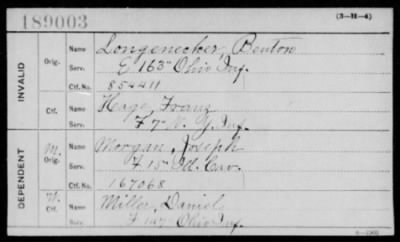 189003
(3-11-4)
INVALID
Orig.
Name Longenecker, Benton
Serv. E 163" Ohio Inf.
Ctf. No. 854411
Ctf.
Name Hage, Franz
Serv. F 7" N. Y. Inf.
DEPENDENT
M.
Orig.
Name Morgan, Joseph
Serv. F 15" Cav.
Ctf. No. 167068
W.
Ctf.
Name Miller, Daniel
Serv. F 147 Ohio Inf.